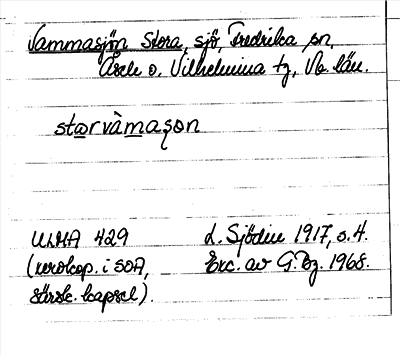 Vammasjön Stora, sjö, Fredrika sn,
Åsele o. Vilhelmina tg, Vb. län.
starvàmaşon
ULMA 429
(xerokop. i SOA,
särsk. kapsel).
L. Sjödin 1917, s. 4.
Exc. av G. Bz. 1968.